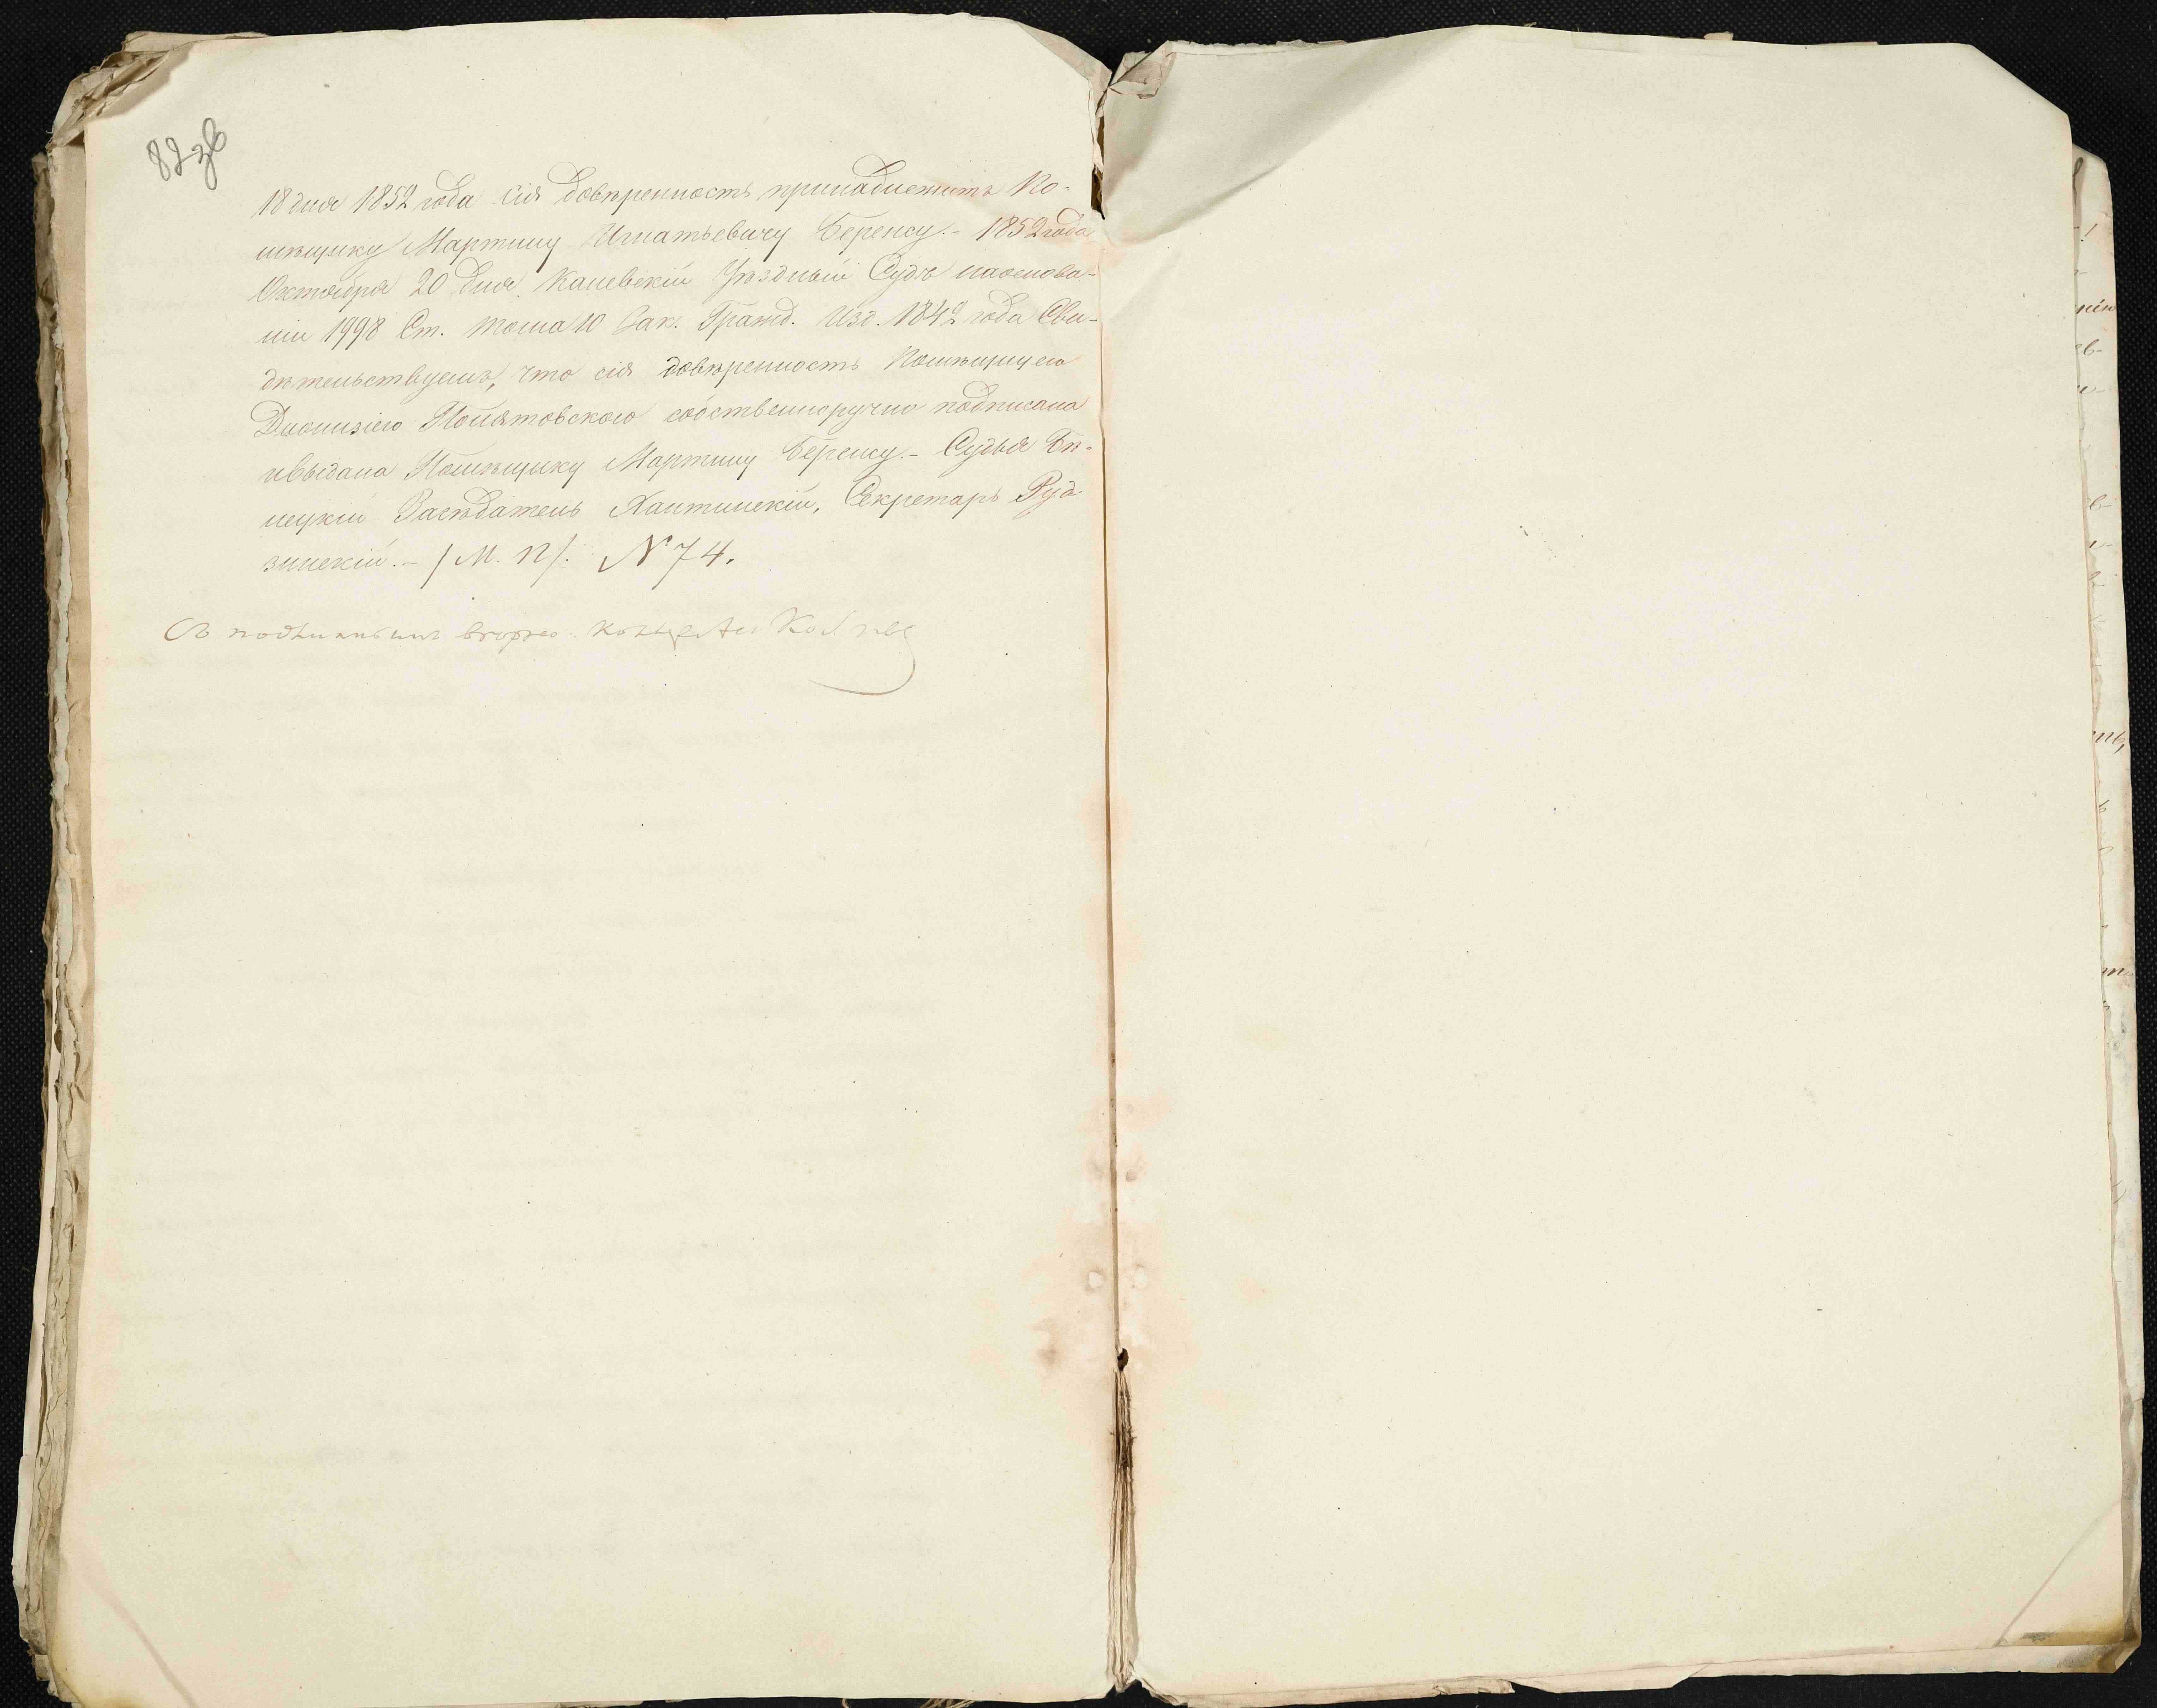 82 об
18 дня 1852 года сія довѣренность принадлежитъ По-
мѣщику Мартину Игнатьевичу Беренсу. – 1852 года
Октября 20 дня. Каневскій Уѣздный Судъ наоснова-
ніи 1998 Ст. тома 10 Зак. Гражд. Изд. 1842 года Сви-
дѣтельствуемъ, что сія довѣренность Помѣщицею
Діонизіею Понятовскою собственноручно подписана
ивыдана Помѣщику Мартину Беренсу. – Судья Бѣ-
лецкій Засѣдатель Хантинскій, Секретарь Руд-
зинскій. – /М. П/. № 74.
Съ подлиннымъ вѣрно.